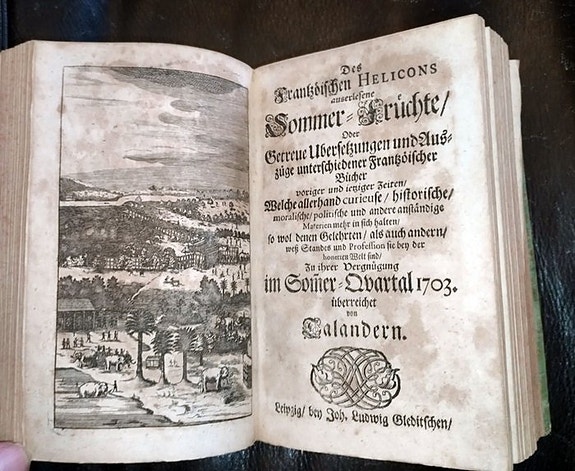 Des
Frantzöischen HELICONS
auserlesene
Sommer-Früchte/
Oder
Getreue Ubersetzungen und Aus-
züge unterschiedener Frantzöischer
Bücher
voriger und ietziger Zeiten/
Welche allerhand curieuse/ historische/
moralische/ politische und andere anständige
Materien mehr in sich halten/
so wol denen Gelehrten/ als auch andern/
weß Standes und Profession sie bey der
honneten Welt sind/
Zu ihrer Vergnügung
im Som̃er-Qvartal 1703.
überreichet
von
Talandern.
Leipzig/ bey Joh. Ludwig Gleditschen/